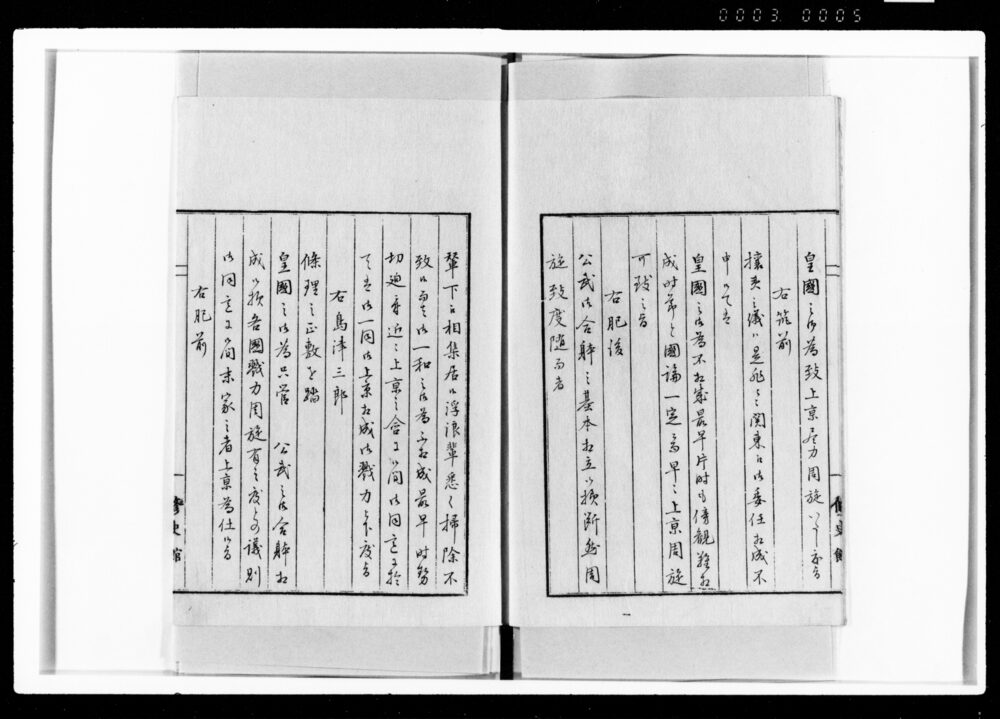 0003 0005
皇國之御為致上京尽力周旋いたし度旨
右筑前
攘夷之儀ハ是非とも関東江御委任相成不
申ハてハ
皇國之御為不相成最早片時も傍観難相
成時節と國論一定ニ而早々上京周旋
可致之旨
右肥後
公武御合躰之基本相立候様断然周
旋致度随而者
輦下江相集居候浮浪輩悉く掃除不
致候而者御一和之御為不相成最早時勢
切迫身近之上京之合ニ候間御同意ニ於
てハ御一同御上京相成御戮力被下度旨
右島津三郎
條理之正敷を踏
皇國之御為只管　公武之御合躰相
成候様各國戮力周旋有之度との議別
御同意ニ候間末家之者上京為仕候旨
右肥前
修史館
修史館